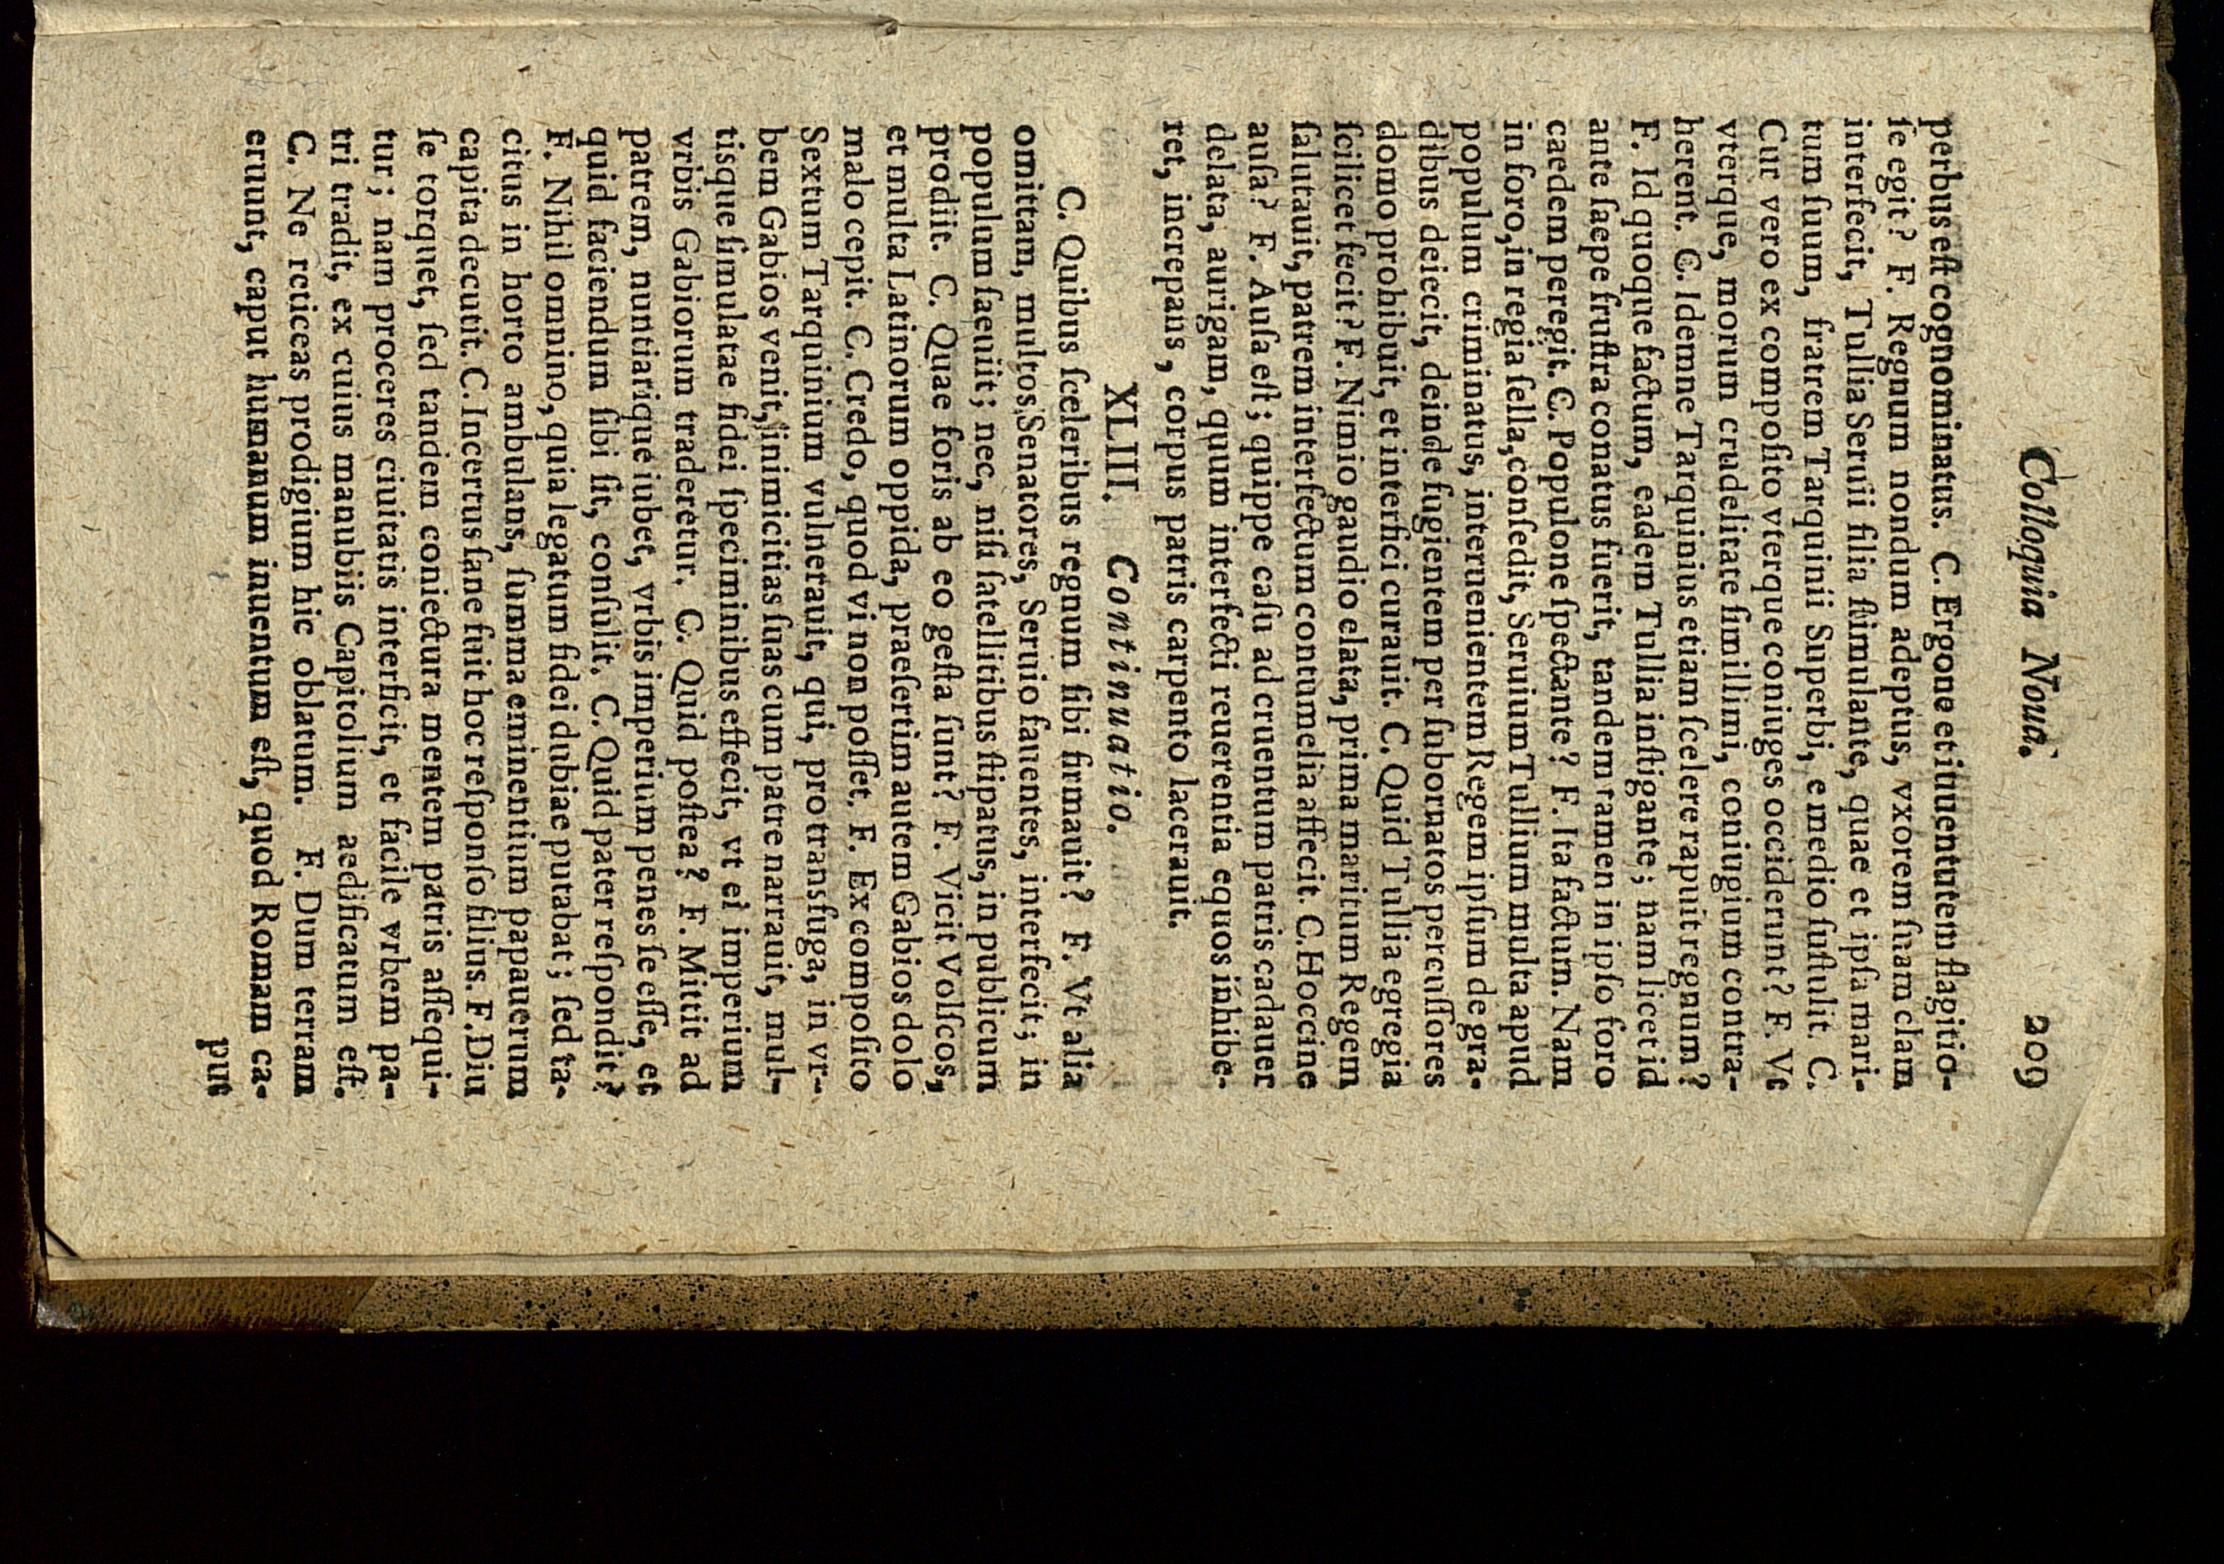 Colloquia Noua. 209
perbus eſt cognominatus. C. Ergone et iuuentutem flagitio-
ſe egit? F. Regnum nondum adeptus, vxorem ſuam clam
interfecit, Tullia Seruii filia ſtimulante, quae et ipſa mari-
tum ſuum, fratrem Tarquinii Superbi, e medio ſuſtulit. C.
Cur vero ex compoſito vterque coniuges occiderunt? F. Vt
vterque, morum crudelitate ſimillimi, coniugium contra-
herent. C. Idemne Tarquinius etiam ſcelere rapuit regnum?
F. Id quoque factum, eadem Tullia inſtigante; nam licet id
ante ſaepe fruſtra conatus fuerit, tandem tamen in ipſo foro
caedem peregit. C. Populone ſpectante? F. Ita factum. Nam
in foro, in regia ſella, conſedit, Seruium Tullium multa apud
populum criminatus, interuenientem Regem ipſum de gra-
dibus deiecit, deinde fugientem per ſubornatos percuſſores
domo prohibuit, et interfici curauit. C. Quid Tullia egregia
ſcilicet fecit? F. Nimio gaudio elata, prima maritum Regem
ſalutauit, patrem interfectum contumelia affecit. C. Hoccine
auſa? F. Auſa eſt; quippe caſu ad cruentum patris cadauer
delata, aurigam, quum interfecti reuerentia equos inhibe-
ret, increpans, corpus patris carpento lacerauit.
XLIII. Continuatio.
C. Quibus ſceleribus regnum ſibi firmauit? F. Vt alia
omittam, multos Senatores, Seruio fauentes, interfecit; in
populum ſaeuiit; nec, niſi ſatellitibus ſtipatus, in publicum
prodiit. C. Quae foris ab eo geſta ſunt? F. Vicit Volſcos,
et multa Latinorum oppida, praeſertim autem Gabios dolo
malo cepit. C. Credo, quod vi non poſſet. F. Ex compoſito
Sextum Tarquinium vulnerauit, qui, pro transfuga, in vr-
bem Gabios venit, inimicitias ſuas cum patre narrauit, mul-
tisque ſimulatae fidei ſpeciminibus effecit, vt ei imperium
vrbis Gabiorum traderetur. C. Quid poſtea? F. Mittit ad
patrem, nuntiarique iubet, vrbis imperium penes ſe eſſe, et
quid faciendum ſibi ſit, conſulit. C. Quid pater reſpondit?
F. Nihil omnino, quia legatum fidei dubiae putabat; ſed ta-
citus in horto ambulans, ſumma eminentium papauerum
capita decutit. C. Incertus ſane fuit hoc reſponſo filius. F. Diu
ſe torquet, ſed tandem coniectura mentem patris aſſequi-
tur; nam proceres ciuitatis interficit, et facile vrbem pa-
tri tradit, ex cuius manubiis Capitolium aedificatum eſt.
C. Ne reticeas prodigium hic oblatum. F. Dum terram
eruunt, caput humanum inuentum eſt, quod Romam ca-
put